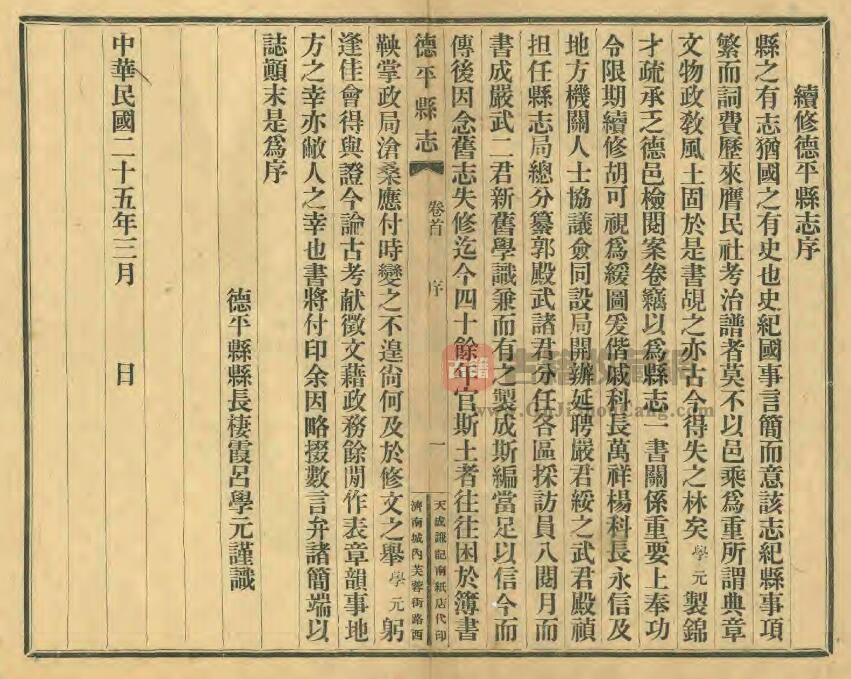 續修德平縣志序
縣之有志猶國之有史也史紀國事言簡而意該志紀縣事項
繁而詞費歷來膺民社考治譜者莫不以邑乘爲重所謂典章
文物政敎風土固於是書覘之亦古今得失之林矣學元製錦
才疏承乏德邑檢閱案卷竊以爲縣志一書關係重要上奉功
令限期續修胡可視爲緩圖爰偕戚科長萬祥楊科長永信及
地方機關人士協議僉同設局開辦延聘嚴君綏之武君殿禎
担任縣志局總分纂郭殿武諸君分任各區採訪員八閱月而
書成嚴武二君新舊學識兼而有之製成斯編當足以信今而
傳後因念舊志失修迄今四十餘年官斯土者往往困於簿書
德平縣志 卷首 序 一 天成謙記南紙店代印
濟南城內芙蓉街路西
鞅掌政局滄桑應付時變之不遑尙何及於修文之舉學元躬
逢佳會得與證今論古考献徵文藉政務餘閒作表章韻事地
方之幸亦敝人之幸也書將付印余因略掇數言弁諸簡端以
誌顚末是爲序
德平縣縣長棲霞呂學元謹識
中華民國二十五年三月 日
古籍
www.GuJiShouCang.com